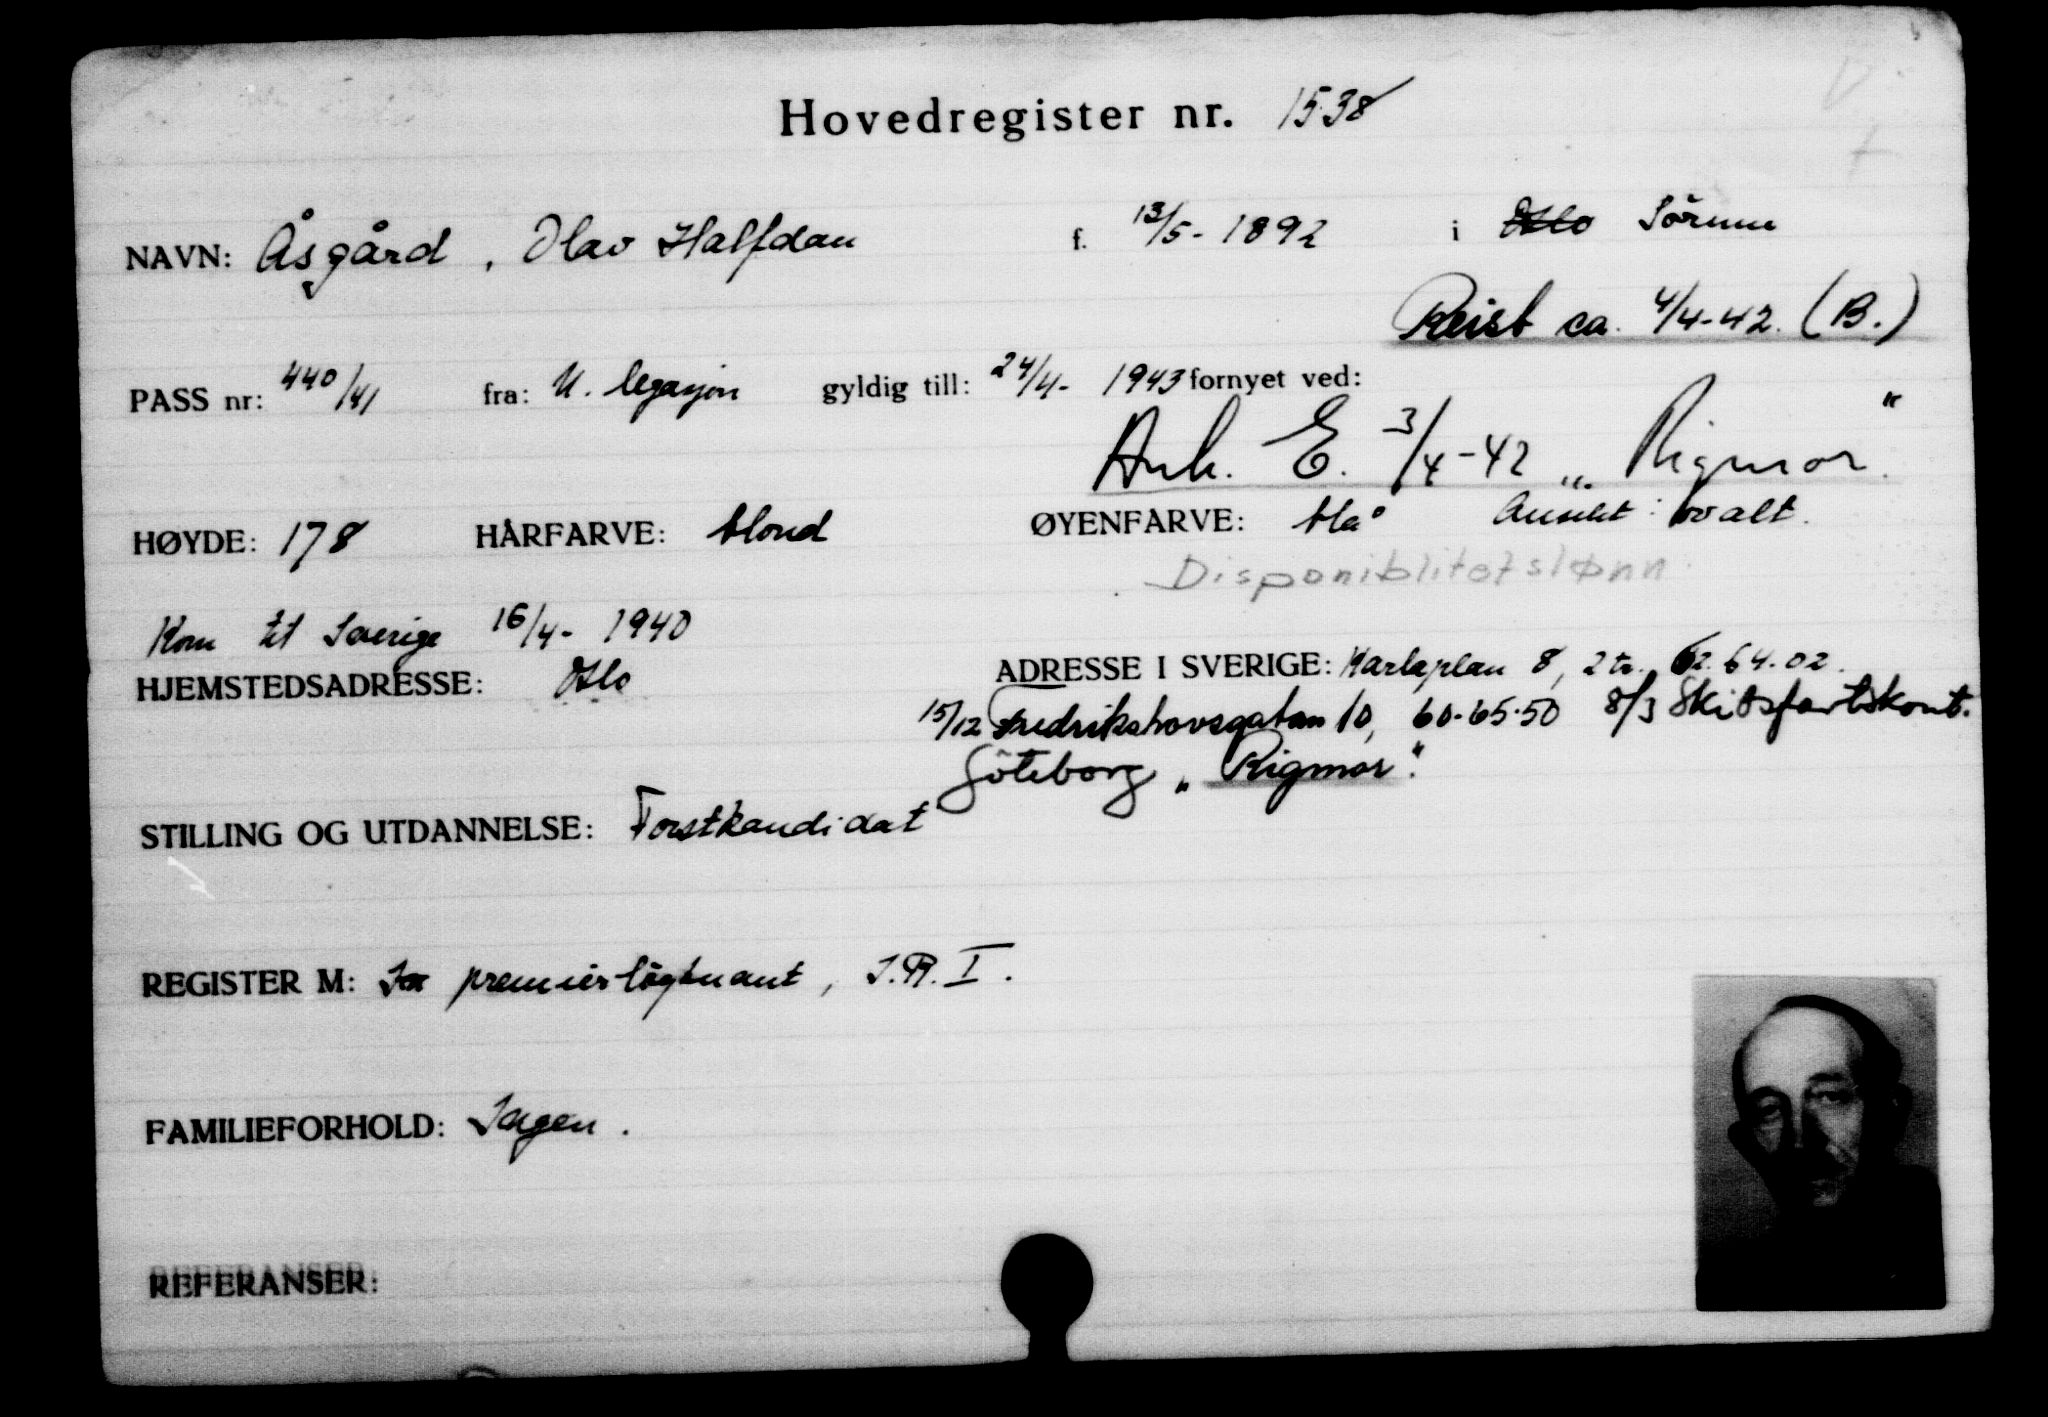 Hovedregister nr. 1538
NAVN: Åsgård, Olav Halfdan f. 13/5-1892 i Oslo Sörum
Reist ca. 4/4-42. (B.)
PASS nr: 440/41 fra: N. legasjon gyldig till: 24/4- 1943 fornyet ved:
Ank. E. 3/4-42 „Rigmor"
HØYDE: 178 HÅRFARVE: blond ØYENFARVE: blå Ansikt: ovalt.
Disponiblitetslønn
Kom til Sverige 16/4- 1940
HJEMSTEDSADRESSE: Oslo ADRESSE I SVERIGE: Karlaplan 8, 2 tr. 62.64.02.
15/12 Fredrikshovsgatan 10, 60.65.50 8/3 Skibsfartskont.
Göteborg „Rigmor".
STILLING OG UTDANNELSE: Forstkandidat
REGISTER M: premierløytnant, I.R. I.
FAMILIEFORHOLD: Ingen.
REFERANSER: